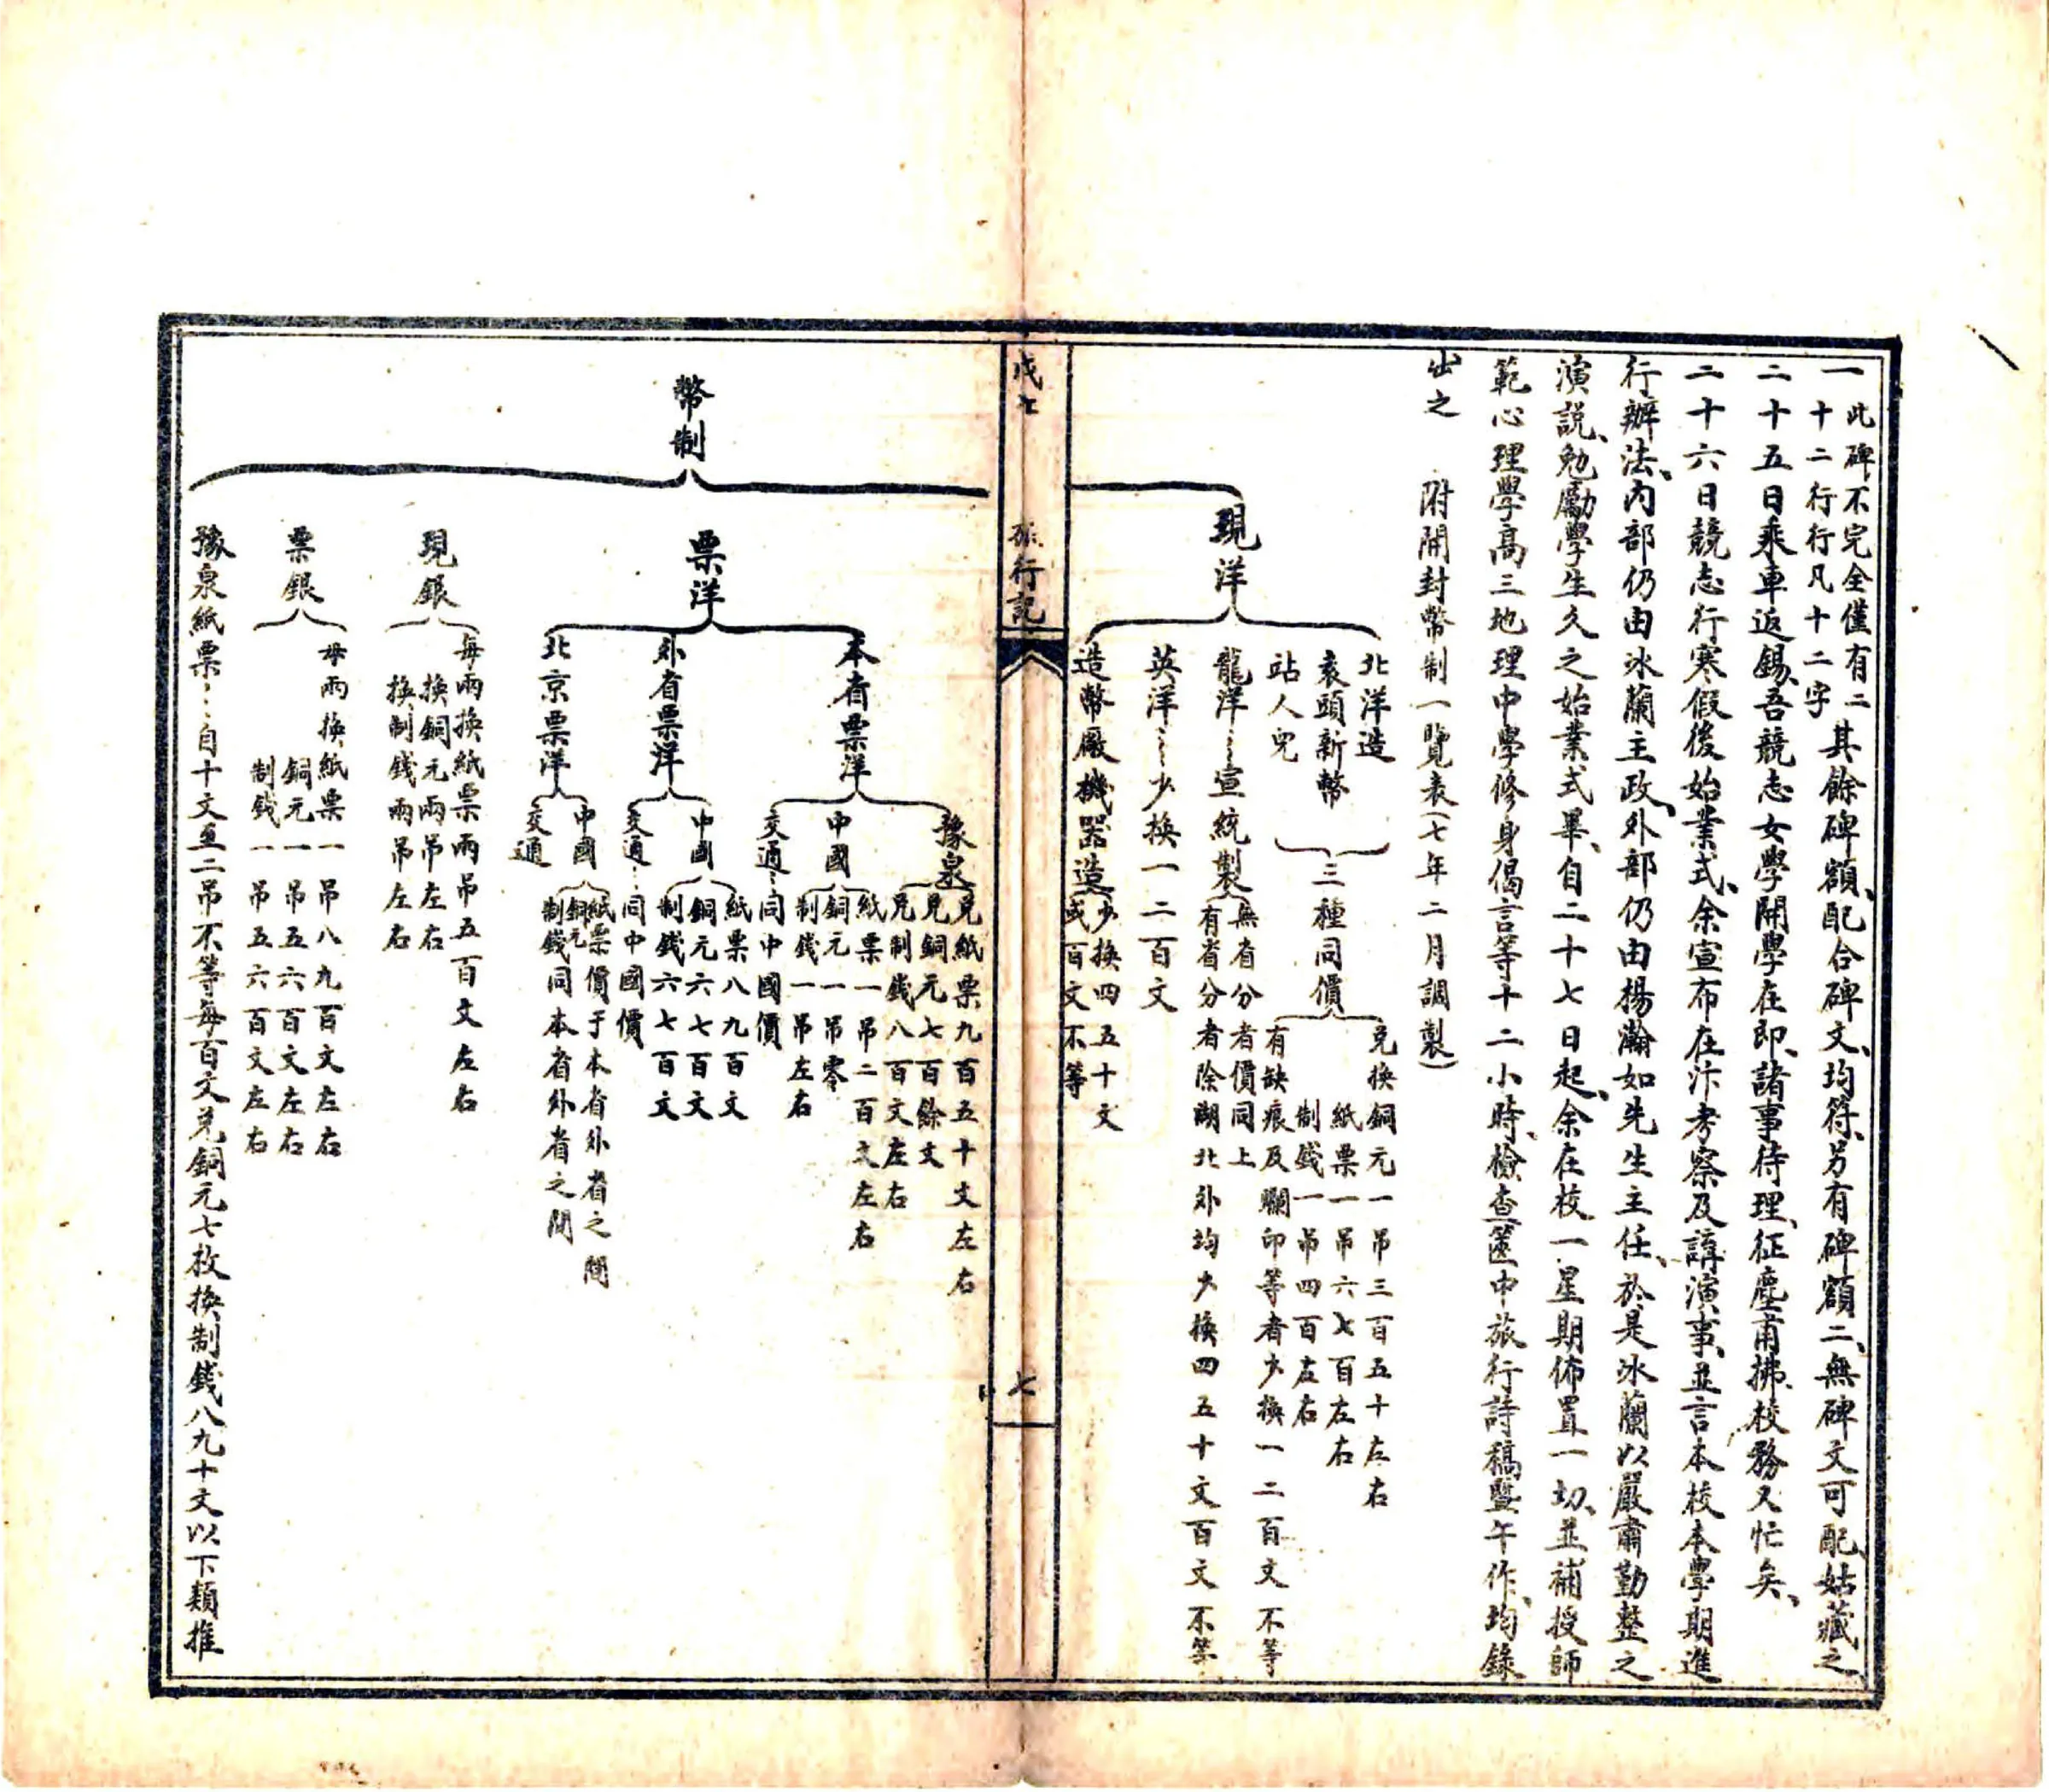 一此碑不完全僅有二
十二行行凡十二字其餘碑額、配合碑文、均符、另有碑額二、無碑文可配、姑藏之
二十五日乘車返錫、吾競志女學開學在即、諸事待理、征塵甫拂、校務又忙矣、
二十六日競志行寒假後始業式、余宣布在汴考察及講演事、並言本校本學期進
行辦法、內部仍由冰蘭主政、外部仍由揚瀚如先生主任、於是冰蘭以嚴肅勤整之
演説、勉勵學生久之始業式畢、自二十七日起、余在校一星期佈置一切、並補授師
範心理學高三地理中學修身偈言等十二小時、檢查篋中旅行詩稿塈午作、均錄
出之　附開封幣制一覽表(七年二月調製)
現洋
北洋造
袁頭新幣
站人兒
三種同價
兌換銅元一吊三百五十左右
紙票一吊六七百左右
制錢一吊四百左右
有缺痕及斕印等者少換一二百文不等
龍洋…宣統製
無省分者價同上
有省分者除湖北外均少換四五十文百文不等
英洋…少換一二百文
造幣廠機器造
少換四五十文
或百文不等
旅行記
七
幣制
票洋
本省票洋
豫泉
兌紙票九百五十文左右
兌銅元七百餘文
兌制錢八百文左右
中國
紙票一吊二百文左右
銅元一吊零
制錢一吊左右
交通…同中國價
外省票洋
中國
紙票八九百文
銅元六七百文
制錢六七百文
交通…同中國價
北京票洋
中國
紙票價于本省外省之間
銅元
制錢同本省外省之間
交通
現銀
每兩換紙票兩吊五百文左右
換銅元兩吊左右
換制錢兩吊左右
票銀
每兩換紙票一吊八九百文左右
銅元一吊五六百文左右
制錢一吊五六百文左右
豫泉紙票…自十文至二吊不等每百文兌銅元七枚換制錢八九十文以下類推